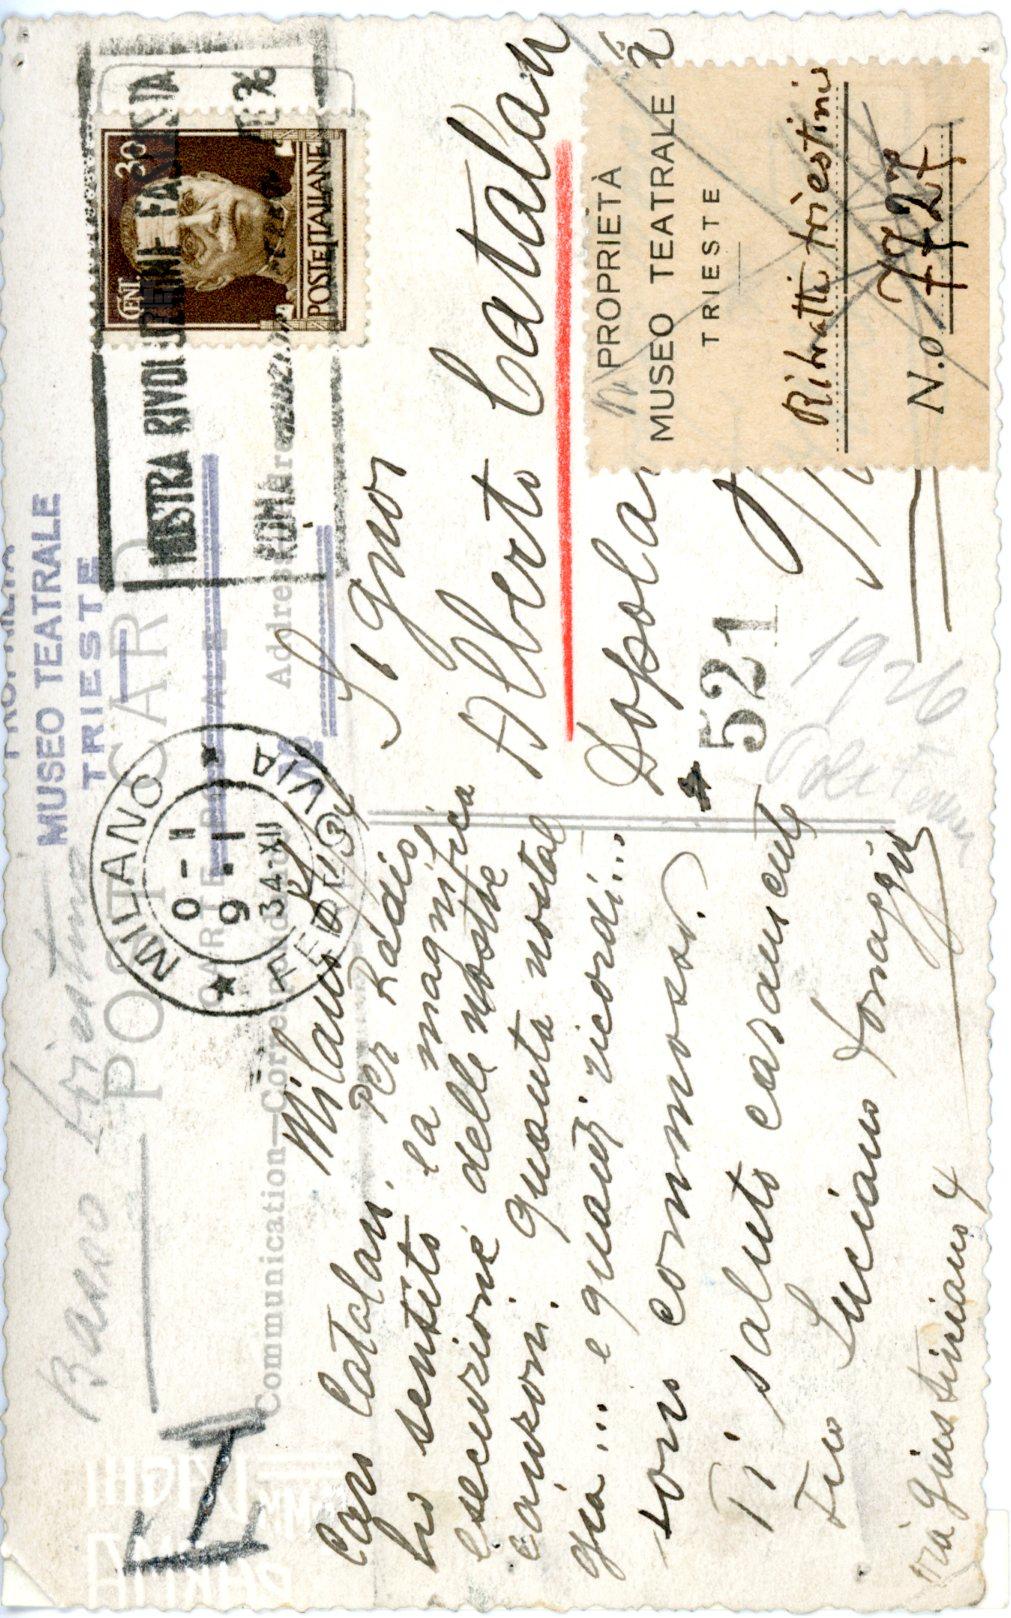 PROPRIETÀ
MUSEO TEATRALE
TRIESTE
POST CARD
CARTE POSTALE
Communication—Correspondence
Address
Basso triestino
MILANO
FERROVIA
0-11
9-1
34-XII
CENT. 30
POSTE ITALIANE
MOSTRA RIVOLUZIONE FASCISTA
ROMA
Milano
Caro Catalan. Per Radio
ho sentito la magnifica
esecuzione delle nostre
canzoni. Quanta nostal
gia... e quanti ricordi...
sono commosso.
Ti saluto caramente
Tuo Luciano Donaggio
via Giustiniano 4
Signor
Alberto Catalan
Dopola
521
1926
PROPRIETÀ
MUSEO TEATRALE
TRIESTE
Ritratti triestini
N.o 7727